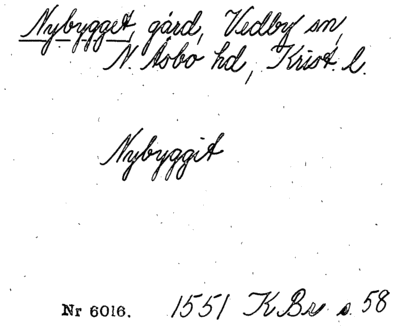 Nybygget, gård, Vedby sn,
N. Åsbo hd, Krist. l.
Nybyggit
Nr 6016. 1551 KBr s. 58